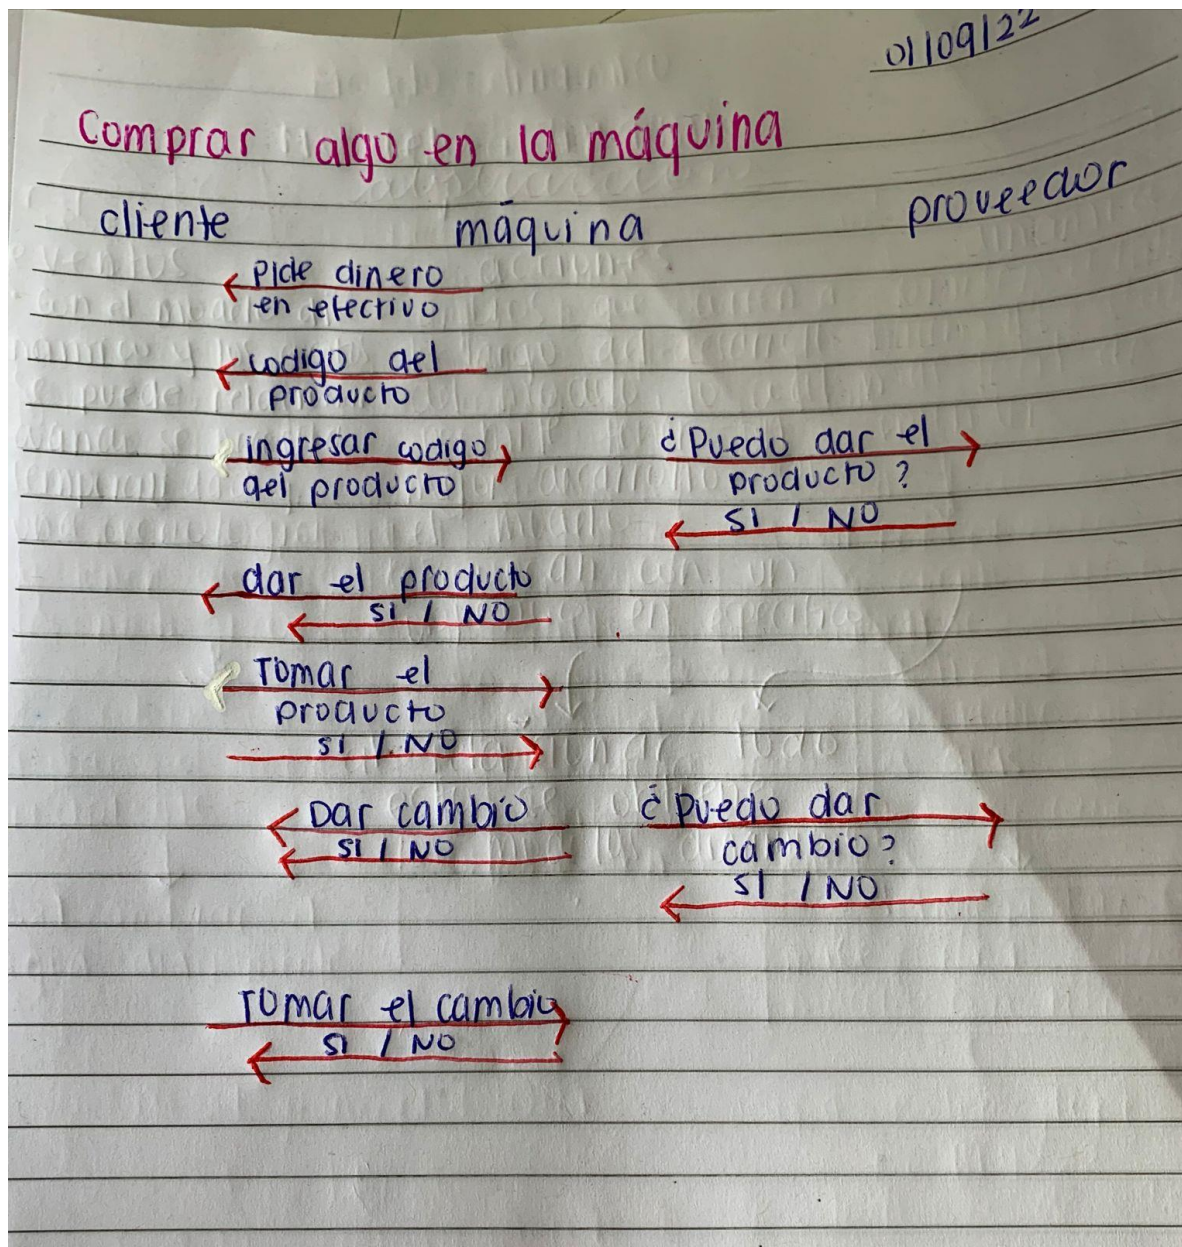 01/09/22
Comprar algo en la máquina
cliente máquina proveedor
Pide dinero
en efectivo
codigo del
producto
ingresar codigo
del producto
¿Puedo dar el
producto?
SI / NO
dar el producto
SI / NO
Tomar el
producto
SI / NO
Dar cambio
SI / NO
¿Puedo dar
cambio?
SI / NO
Tomar el cambio
SI / NO